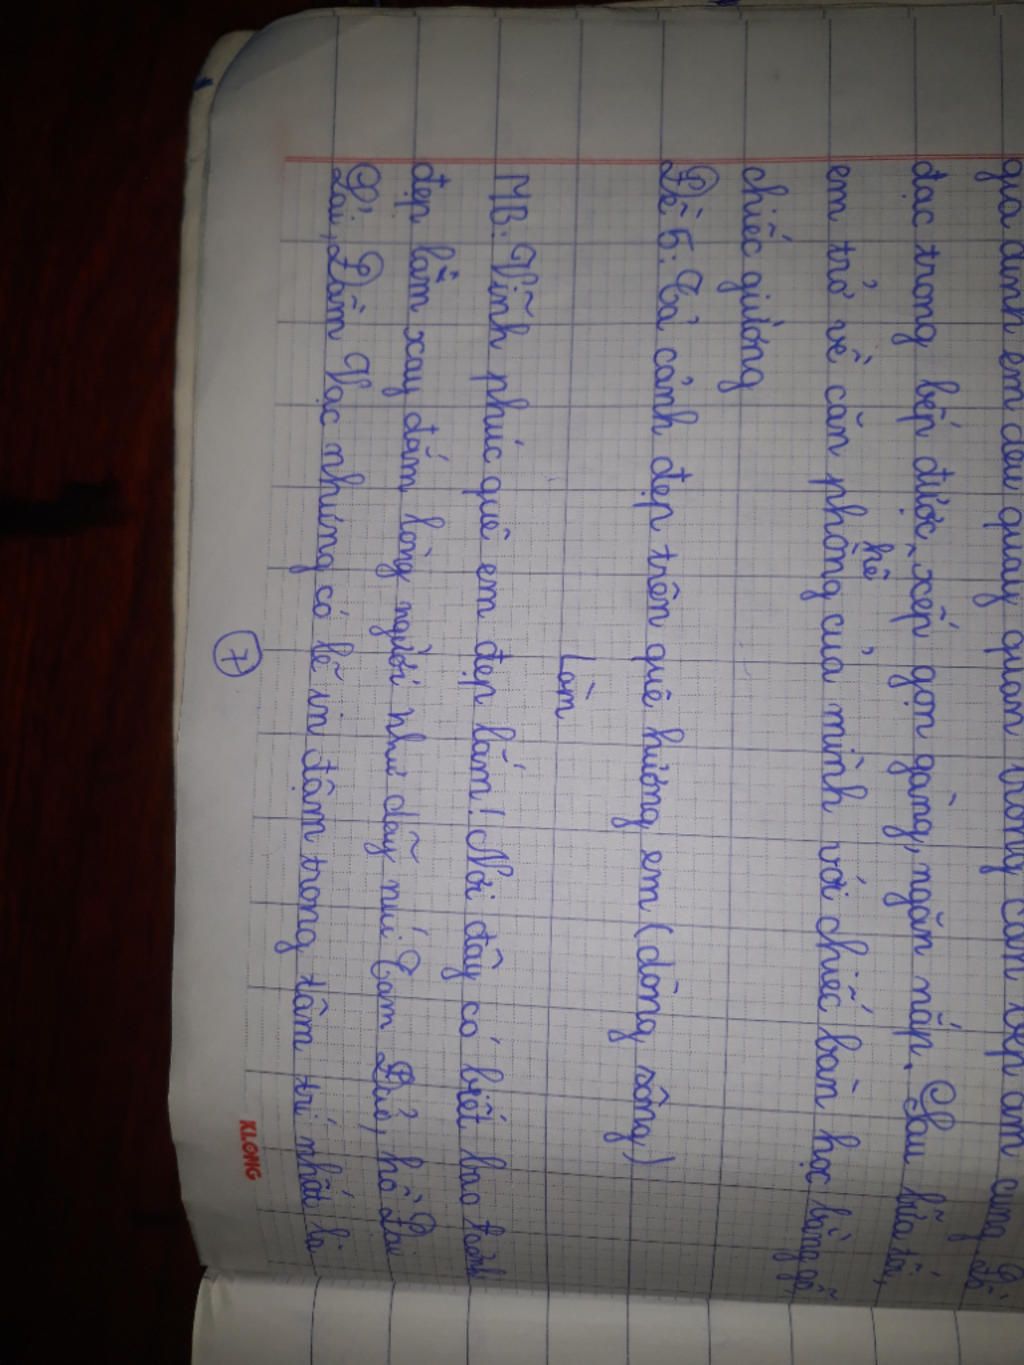 gia đình em đều quây quần trong căn bếp ấm cúng. Đồ
đạc trong bếp được xếp gọn gàng, ngăn nắp. Sau bữa tối,
kê
em trở về căn phòng của mình với chiếc bàn học bằng gỗ,
chiếc giường
Đề 5: Tả cảnh đẹp trên quê hương em (dòng sông)
Làm
MB: Vĩnh phúc quê em đẹp lắm! Nơi đây có biết bao cảnh
đẹp làm xay đắm lòng người như dãy núi Tam Đảo, hồ Đại
Lải, Đầm Vạc nhưng có lẽ in đậm trong tâm trí nhất là
7
KLONG